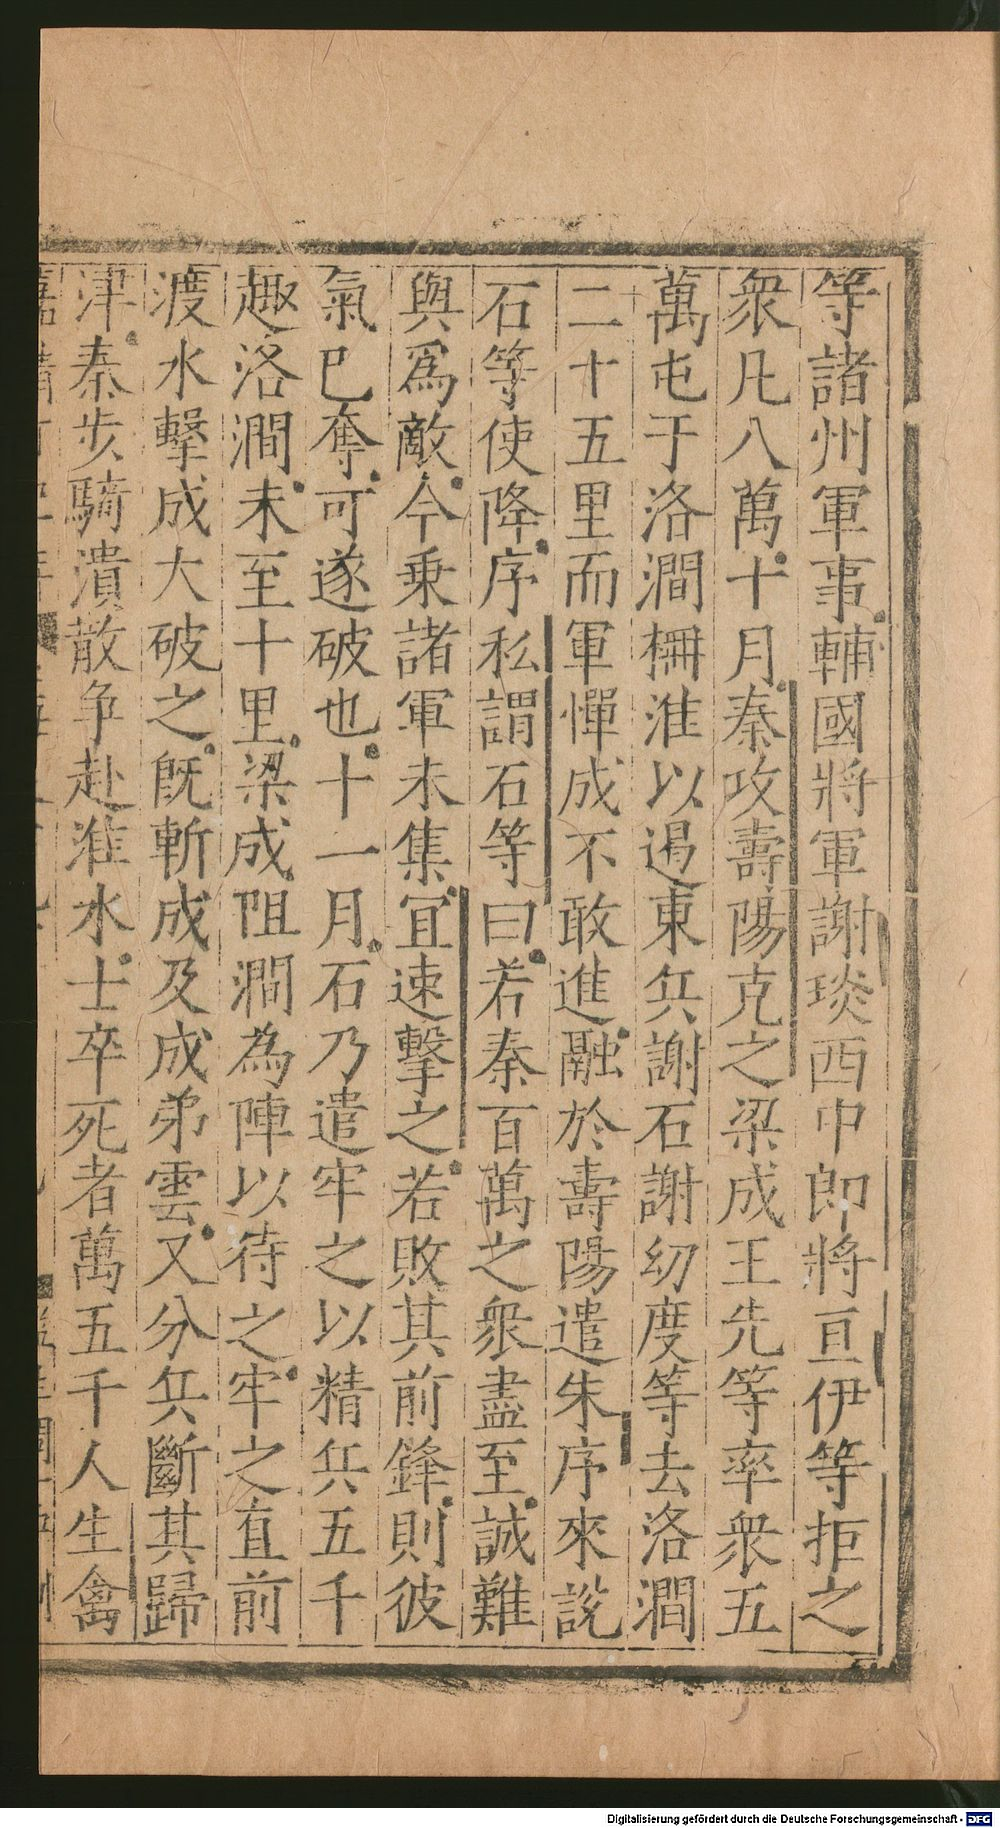 等諸州軍事輔國將軍謝琰西中郎將亘伊等拒之
衆凡八萬十月秦攻壽陽克之梁成王先等率衆五
萬屯于洛澗柵淮以遏東兵謝石謝幼度等去洛澗
二十五里而軍憚成不敢進融於壽陽遣朱序來說
石等使降序私謂石等曰若秦百萬之衆盡至誠難
與爲敵今乗諸軍未集宜速擊之若敗其前鋒則彼
氣已奪可遂破也十一月石乃遣牢之以精兵五千
趣洛澗未至十里梁成阻澗為陣以待之牢之直前
渡水擊成大破之既斬成及成弟雲又分兵斷其歸
津秦步騎潰散争赴淮水士卒死者萬五千人生禽
Digitalisierung gefördert durch die Deutsche Forschungsgemeinschaft - DFG